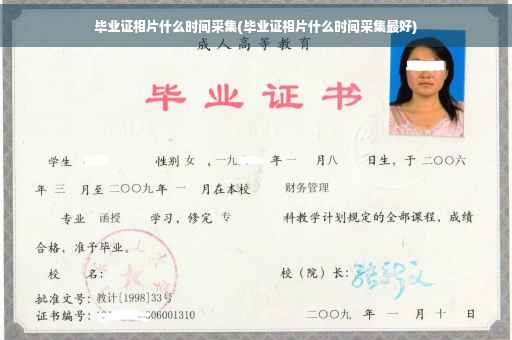 毕业证相片什么时间采集(毕业证相片什么时间采集最好)
成人高等教育
毕业证书
学生 性别 女 ，一九 年 一 月 八 日生，于 二〇〇六
年 三 月至 二〇〇九 年 一 月在本校 财务管理
专业 函授 学习，修完 专 科教学计划规定的全部课程，成绩
合格，准予毕业。
校 名：
校（院）长：
批准文号：教计[1998]33号
证书编号：1 006001310
二〇〇九 年 一 月 十 日